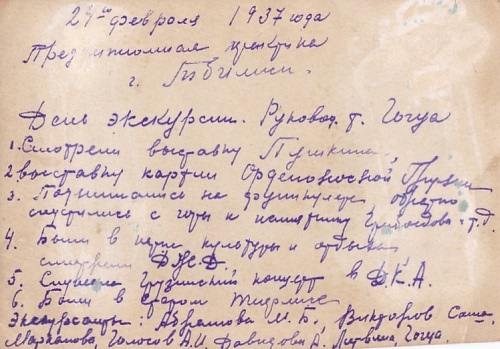 24го февраля 1937 года
Преддипломная практика
г. Тбилиси.
День экскурсии. Руковод. т. Гогуа
1. Смотрели выставку Пушкина,
2 выставку картин Орденоносной Грузии
3. Поднимались на фуникулере обратно
спустились с горы к памятнику Грибоедова и т.д.
4. Были в парке культуры и отдыха
смотрели
5. Слушали Грузинский концерт в Д.К.А.
6. Были в старом Тифлисе
Экскурсанты: Абрамова М.Б., Викторов Саша,
Марканова, Голосов А.И. Давидова А. Литвина, Гогуа.